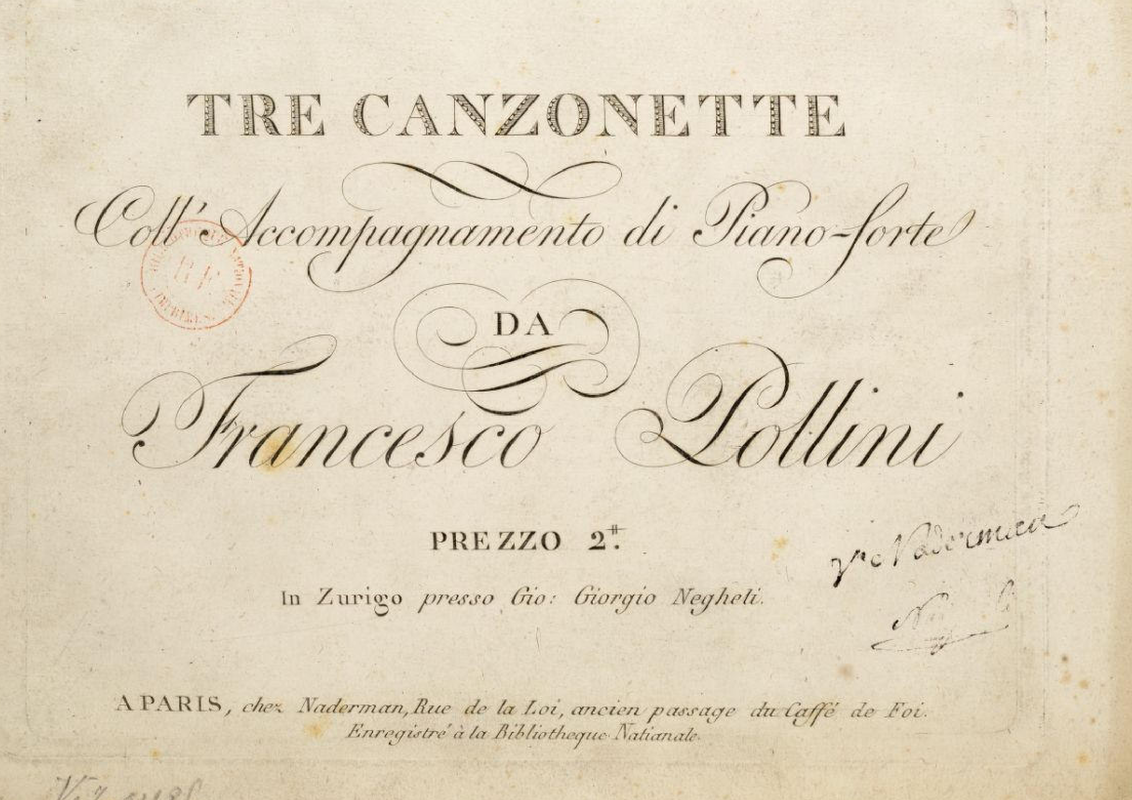 TRE CANZONETTE
Coll' Accompagnamento di Piano-forte
DA
Francesco Pollini
PREZZO 2.#
In Zurigo presso Gio: Giorgio Negheli.
Naderman
A PARIS, chez Naderman, Rue de la Loi, ancien passage du Caffé de Foi.
Enregistré à la Bibliotheque Nationale.